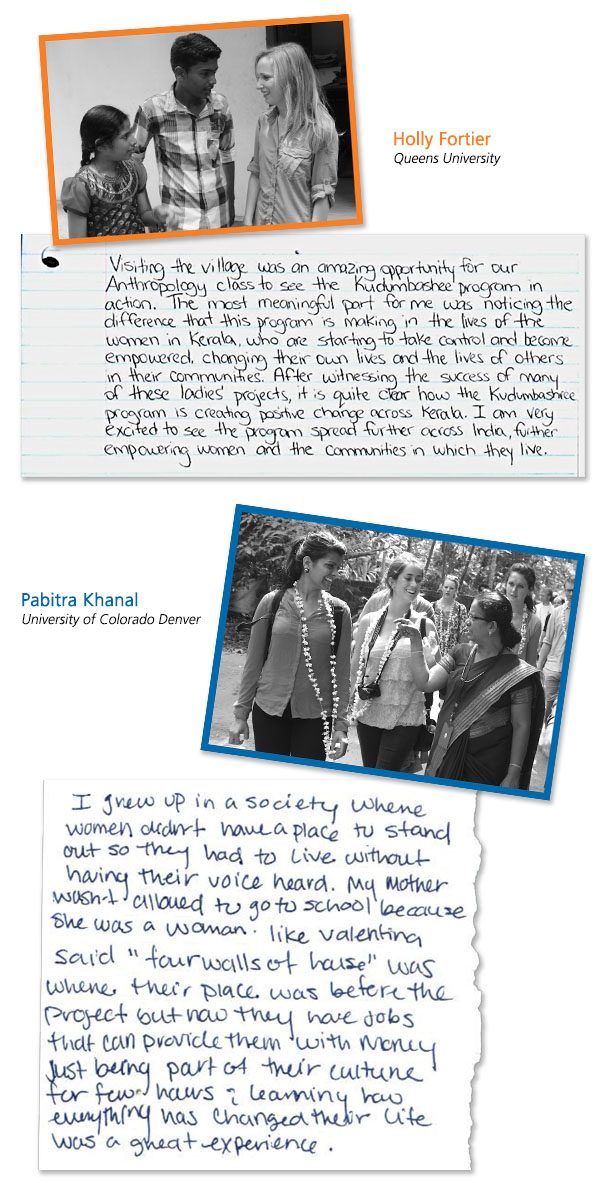 Holly Fortier
Queens University
Visiting the village was an amazing opportunity for our
Anthropology class to see the Kudumbashee program in
action. The most meaningful part for me was noticing the
difference that this program is making in the lives of the
women in Kerala, who are starting to take control and become
empowered, changing their own lives and the lives of others
in their communities. After witnessing the success of many
of these ladies' projects, it is quite clear how the Kudumbashree
program is creating positive change across Kerala. I am very
excited to see the program spread further across India, further
empowering women and the communities in which they live.
Pabitra Khanal
University of Colorado Denver
I grew up in a society where
women didn't have a place to stand
out so they had to live without
having their voice heard. My Mother
wasn't allowed to go to school because
she was a woman. like valentina
said "four walls of house" was
where their place was before the
project but now they have jobs
that can provide them with money
Just being part of their culture
for few hours & learning how
everything has changed their life
was a great experience.